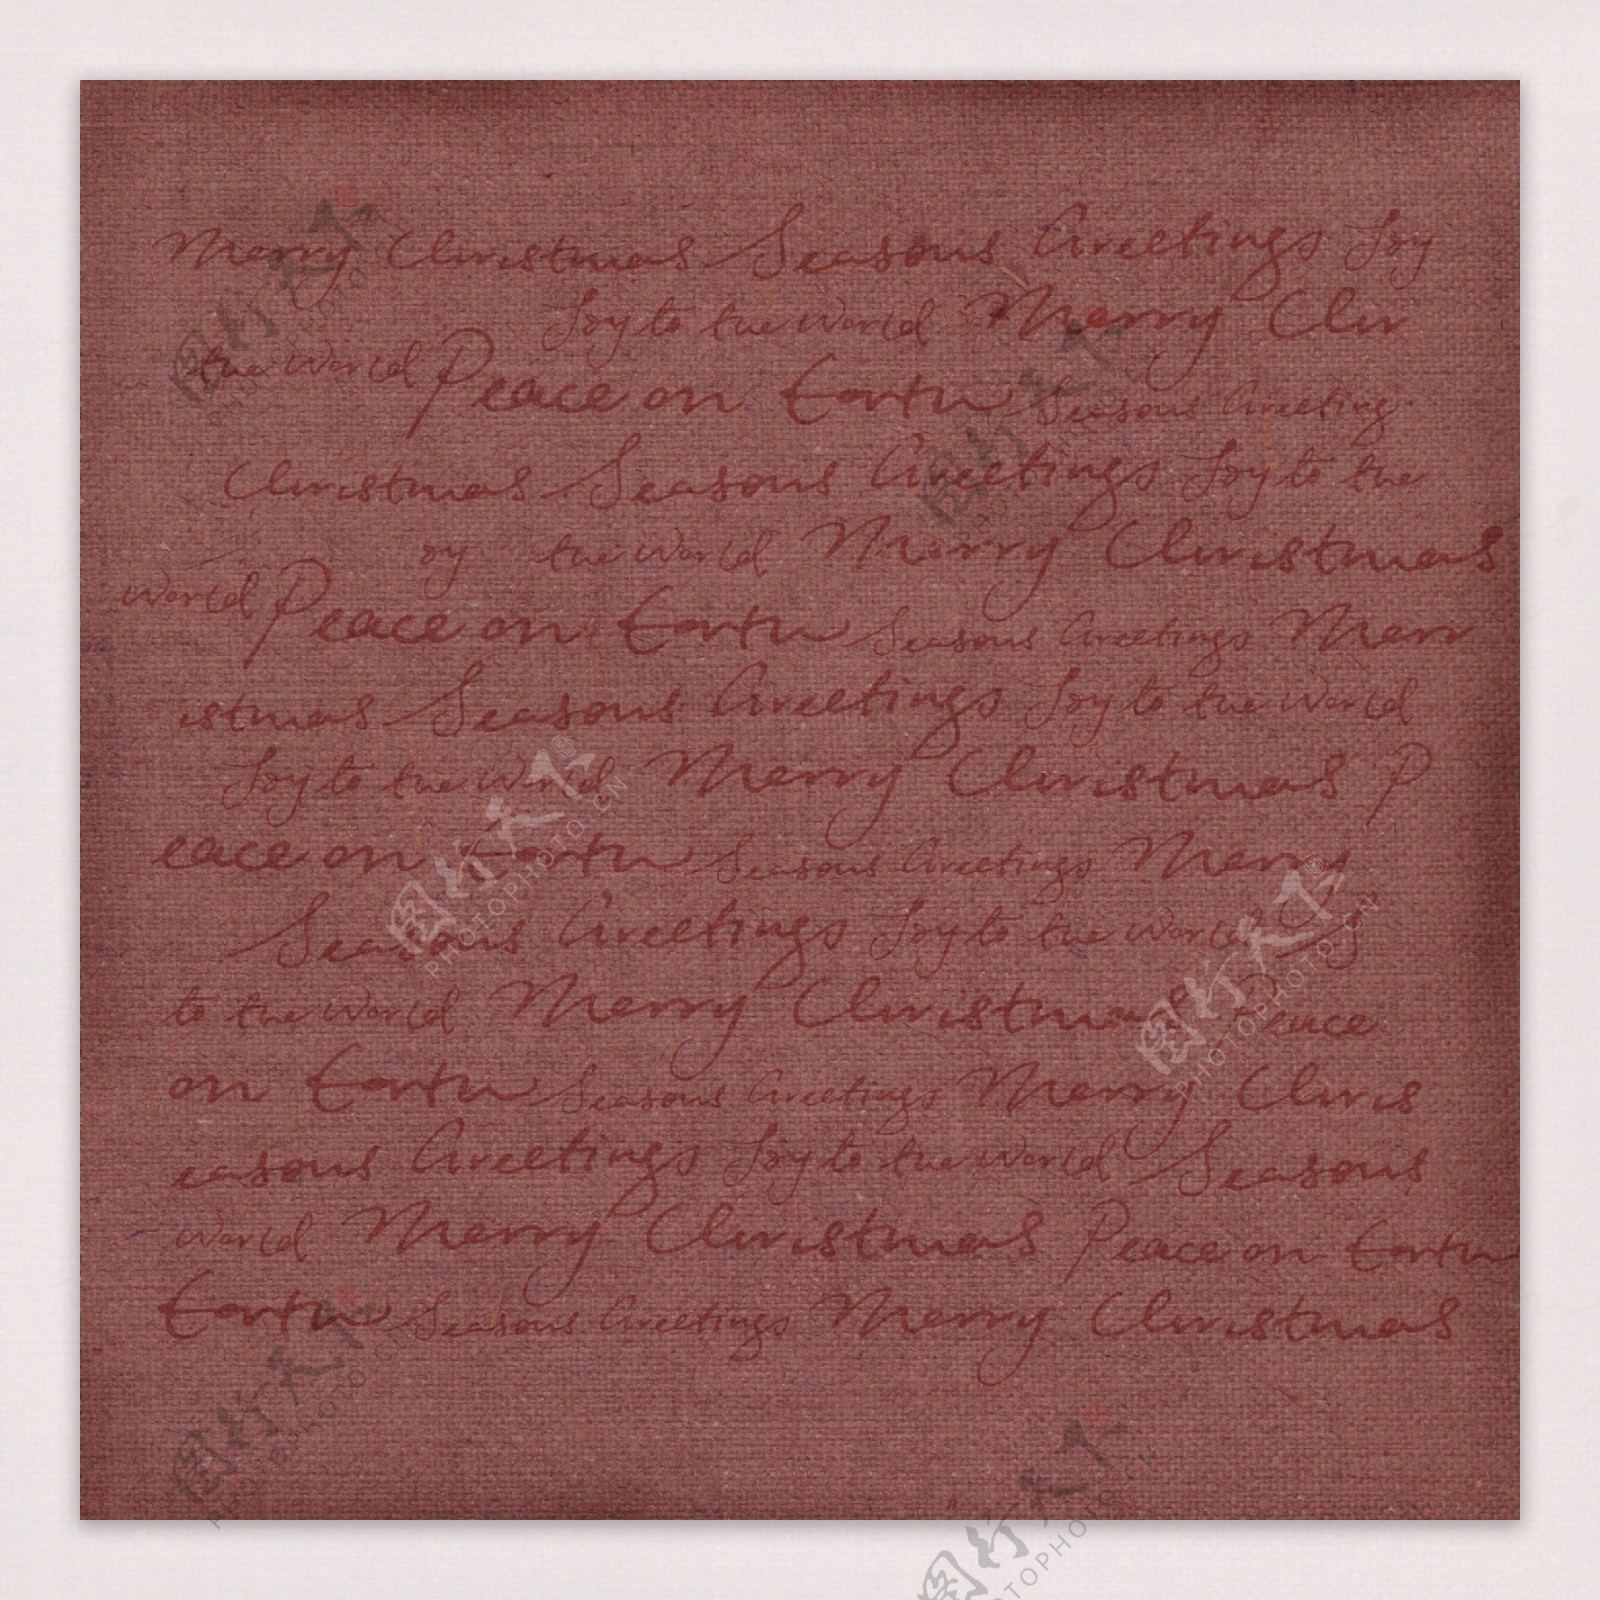 Merry Christmas Seasons Greetings Joy
Joy to the World Merry Chr
the World Peace on Earth Seasons Greeting
Christmas Seasons Greetings Joy to the
oy the World Merry Christmas
World Peace on Earth Seasons Greetings Merr
istmas Seasons Greetings Joy to the World
Joy to the World Merry Christmas P
eace on Earth Seasons Greetings Merry
Seasons Greetings Joy to the World
to the World Merry Christmas Peace
on Earth Seasons Greetings Merry Chris
easons Greetings Joy to the World Seasons
World Merry Christmas Peace on Earth
Earth Seasons Greetings Merry Christmas
图行天下
PHOTOPHOTO.CN
图行天下
PHOTOPHOTO.CN
图行天下
PHOTOPHOTO.CN
图行天下
PHOTOPHOTO.CN
图行天下
PHOTOPHOTO.CN
图行天下
PHOTOPHOTO.CN